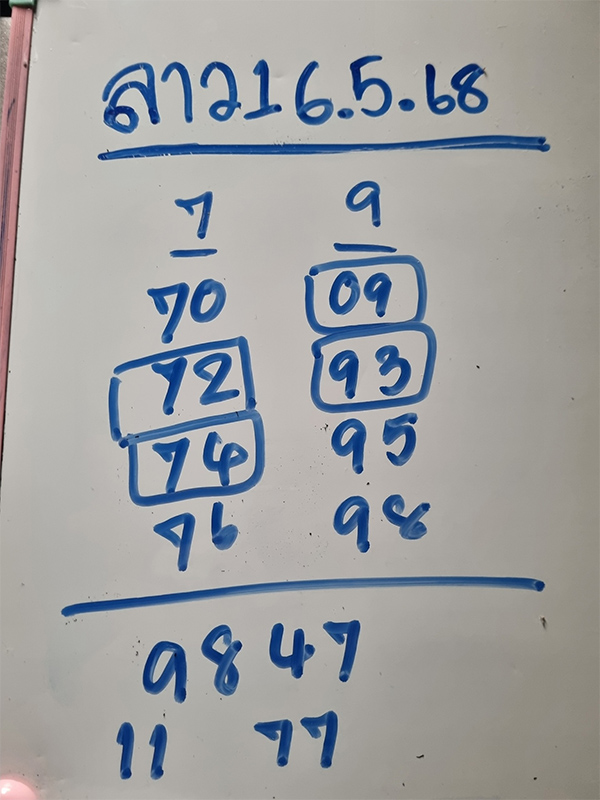 ลาว16.5.68
7 9
70 09
72 93
74 95
76 98
9847
11 77